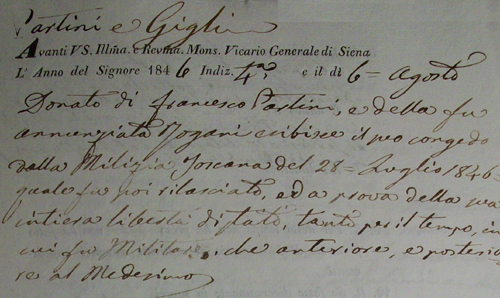 Partini e Gigli
Avanti V.S. Illma. e Revma. Mons. Vicario Generale di Siena
L' Anno del Signore 1846 Indiz. 4a. e il dì 6= Agosto
Donato di Francesco Partini, e della fu
Annunziata Rogani esibisce il suo congedo
dalla Milizia Toscana del 28= Luglio 1846=
quale fu poi rilasciato, ed a prova della sua
intiera libertà di stato, tanto per il tempo, in
cui fu Militare, che anteriore, e posterio
re al Medesimo